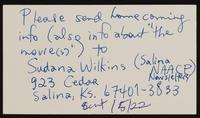 Please send homecoming
info (also info about "the
movie(s)" to
Sudana Wilkins (Salina
NAACP
Newsletter)
923 Cedar
Salina, Ks. 67401-3833
Sent 5/22